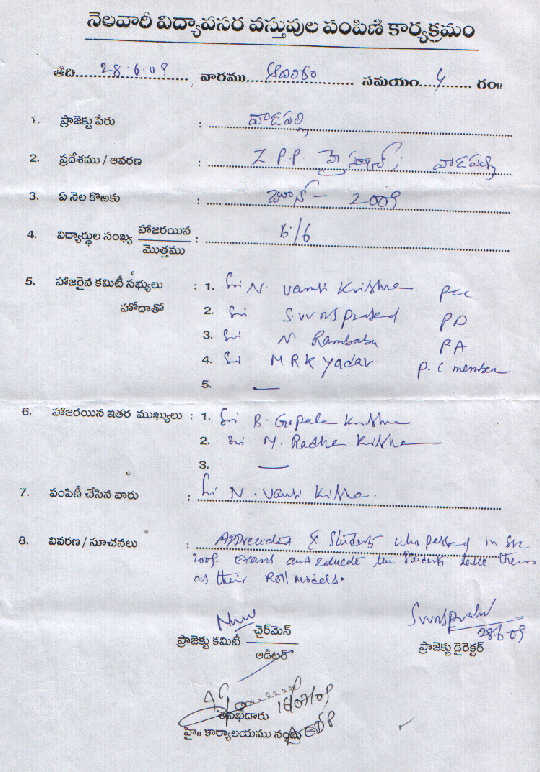 నెలవారీ విద్యావసర వస్తువుల పంపిణి కార్యక్రమం
తేది 28.6.09, వారము ఆదివారం సమయం 4 గం॥
1. ప్రాజెక్టు పేరు : వాడపల్లి
2. ప్రదేశము / ఆవరణ : Z P P హైస్కూల్, వాడపల్లి
3. ఏ నెల కొఱకు : జూన్ - 2009
4. విద్యార్థుల సంఖ్య హాజరయిన / మొత్తము : 6/6
5. హాజరైన కమిటీ సభ్యులు : 1. Sri N. Vamsi Krishna
హోదాతో 2. Sri SVVNS Prasad PD
3. Sri N Rambabu PA
4. Sri M R K Yadav P.C member
5. —
6. హాజరయిన ఇతర ముఖ్యులు : 1. Sri B. Gopala Krishna
2. Sri M. Radha Krishna
3. —
7. పంపిణీ చేసిన వారు : Sri N. Vamsi Krishna.
8. వివరణ / సూచనలు : Appreciated 8 Students who passed in
and educate the Students take them
as their Roll models.
ప్రాజెక్టు కమిటీ ఛైర్‌మెన్ / ఆడిటర్
SVVNS Prasad
28.6.09
ప్రాజెక్టు డైరెక్టర్
16/07/09
తనిఖీదారు
హై॥ కార్యాలయము నందు